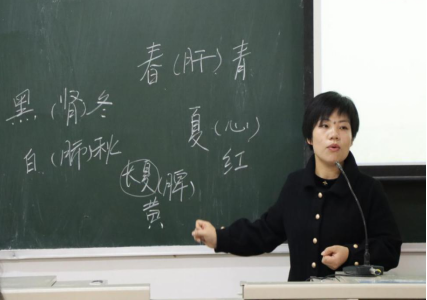 春(肝)青
黑(肾)冬
夏(心)
红
白(肺)秋
长夏(脾)
黄